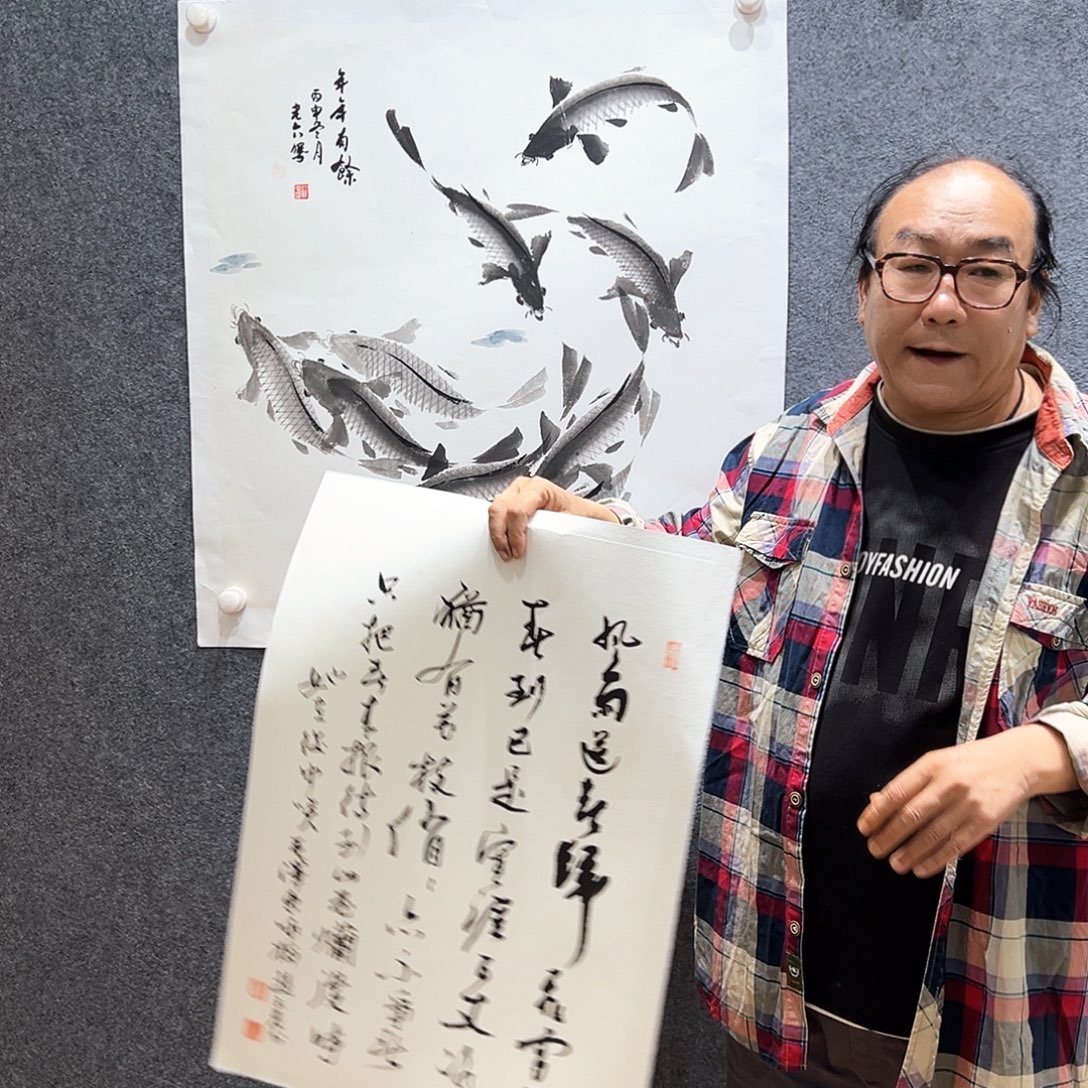 年年有餘
丙申冬月
老六寫
風雨送春歸飛雪
春到已是懸崖百丈冰
猶有花枝俏〻也不爭春
只把春來報待到山花爛漫時
她在叢中笑毛澤東詠梅
OYFASHION